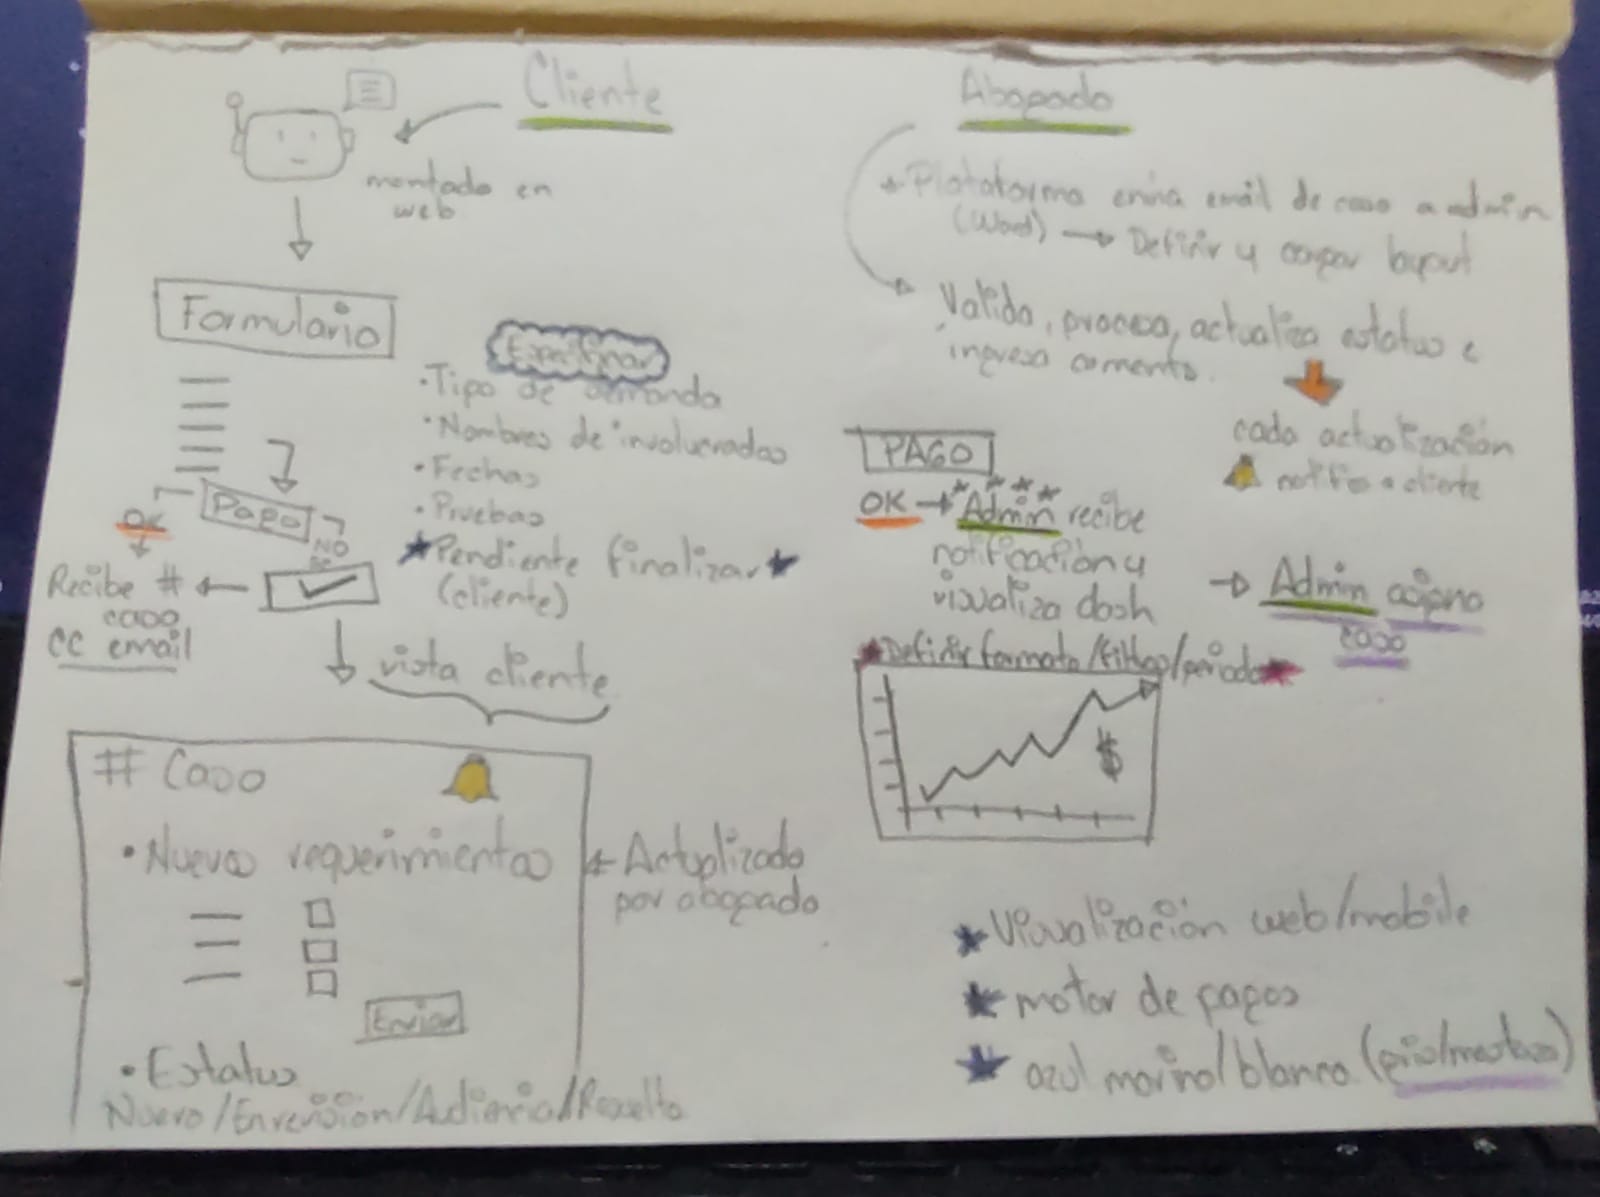 Cliente
montado en
web
Formulario
Especificar
• Tipo de demanda
• Nombres de involucrados
• Fechas
• Pruebas
★ Pendiente finalizar ★
(cliente)
Pago
OK
NO
Recibe #
caso
CC email
vista cliente
# Caso
• Nuevos requerimientos
Enviar
← Actualizado
por abogado
• Estatus
Nuevo/En revisión/Audiencia/Resuelto
Abogado
Plataforma envía email de caso a admin
(Word) → Definir y layout
Valida, procesa, actualiza estatus e
ingresa comento.
cada actualización
notifica a cliente
PAGO
OK → Admin recibe
notificación y
visualiza dash
→ Admin asigna
caso
★ Definir formato/filtros/periodo ★
$
★ Visualización web/mobile
★ motor de pagos
★ azul marino/blanco